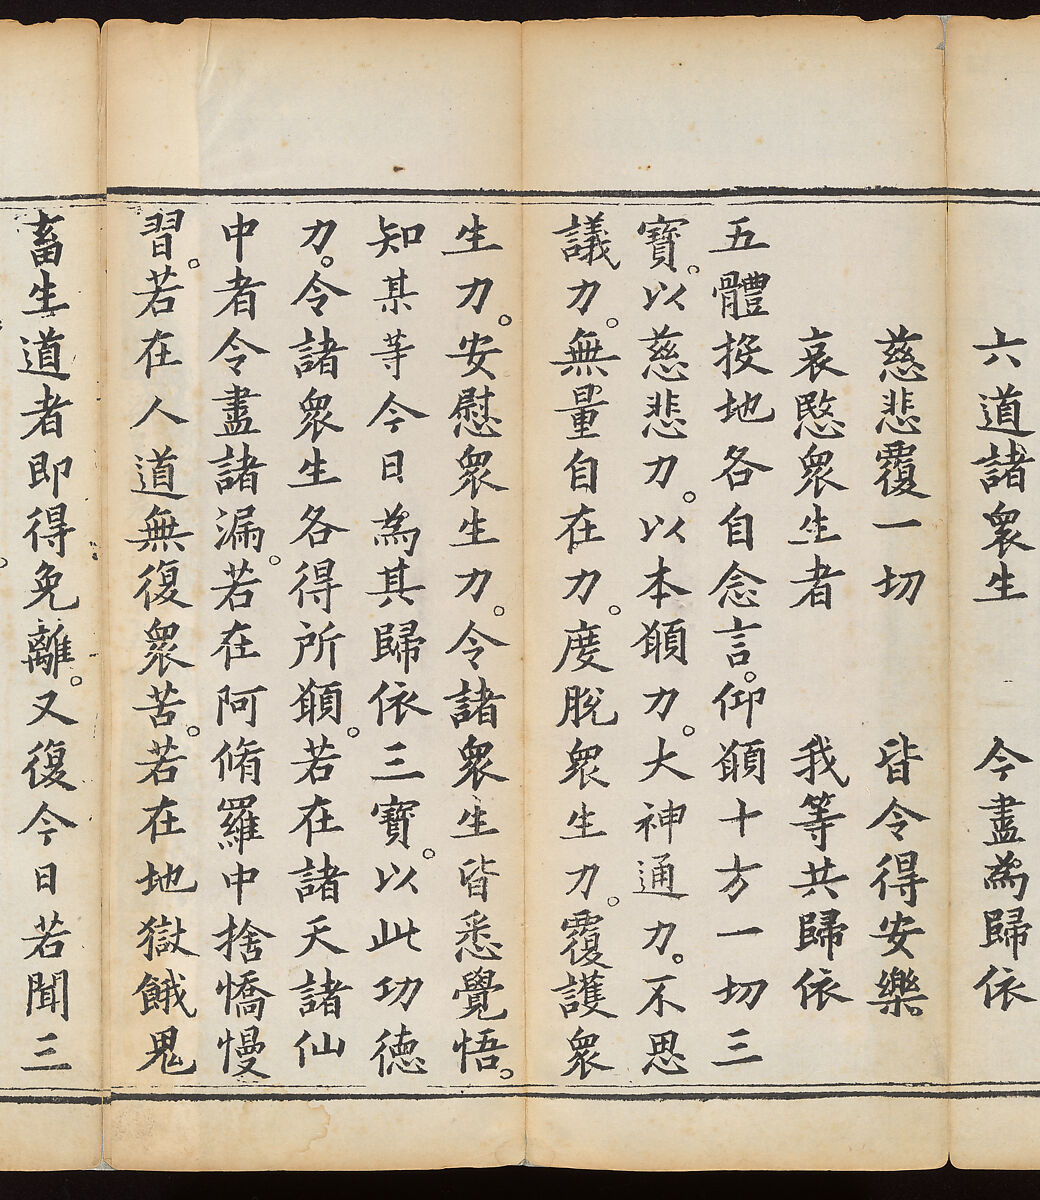 六道諸衆生　今盡為歸依
慈悲覆一切　皆令得安樂
哀愍衆生者　我等共歸依
五體投地各自念言。仰頋十方一切三
寶。以慈悲力。以本頋力。大神通力。不思
議力。無量自在力。度脫衆生力。覆護衆
生力。安慰衆生力。令諸衆生皆悉覺悟。
知某等今日為其歸依三寶。以此功德
力。令諸衆生各得所頋。若在諸天諸仙
中者令盡諸漏。若在阿脩羅中捨憍慢
習。若在人道無復衆苦。若在地獄餓鬼
畜生道者即得免離。又復今日若聞三